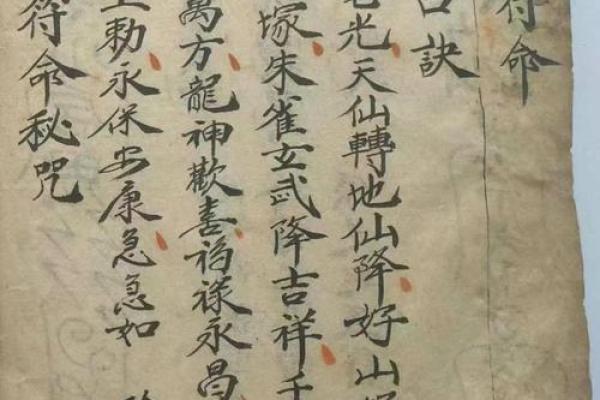 符命
口訣
光天仙轉地仙降好山
塚朱雀玄武降吉祥千
萬方龍神歡喜福祿永昌
勅永保安康急急如
符命秘咒